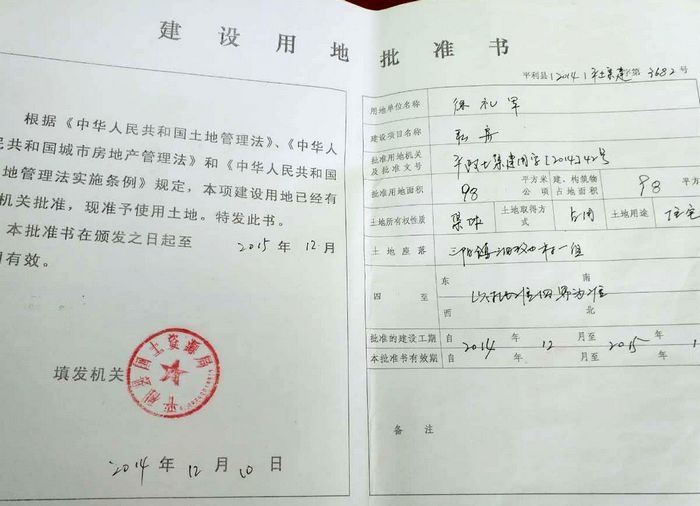 建设用地批准书
根据《中华人民共和国土地管理法》、《中华人
民共和国城市房地产管理法》和《中华人民共和国
地管理法实施条例》规定，本项建设用地已经有
机关批准，现准予使用土地。特发此书。
本批准书在颁发之日起至 2015 年 12 月
有效。
平利县国土资源局
填发机关
2014 年 12 月 10 日
平利县（2014）平土集建字第 3682 号
用地单位名称 徐礼军
建设项目名称 私房
批准用地机关及批准文号 平政土集建函字[2014]42号
批准用地面积 98 平方米 公项 建、构筑物占地面积 98 平方
土地所有权性质 集体 土地取得方式 占用 土地用途 住宅
土地座落 三阳镇 村一组
四至 东 南
为准
西 北
批准的建设工期 自 年 月至 年
2014 12 2015 1
本批准书有效期 自 年 月至 年
备注